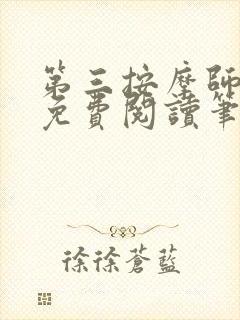 第三按摩師
免費閱讀筆
徐徐蒼藍